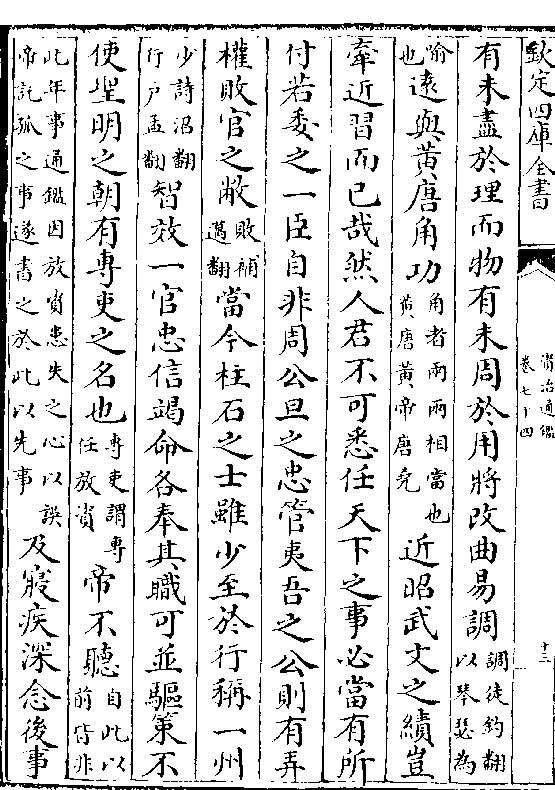 欽定四庫全書
資治通鑑
卷七十四
十三
有未盡於理而物有未周於用將改曲易調調徒釣翻以琴瑟為
喻也遠與黃唐角功角者兩兩相當也黃唐黃帝唐堯近昭武文之績豈
牽近習而已哉然人君不可悉任天下之事必當有所
付若委之一臣自非周公旦之忠管夷吾之公則有弄
權敗官之敝敗補邁翻當今柱石之士雖少至於行稱一州
少詩沼翻行戸孟翻智效一官忠信竭命各奉其職可並驅策不
使聖明之朝有專吏之名也專吏謂專任放資帝不聽自此以前皆非
此年事通鑑因放資患失之心以誤帝託孤之事遂書之於此以先事及寢疾深念後事